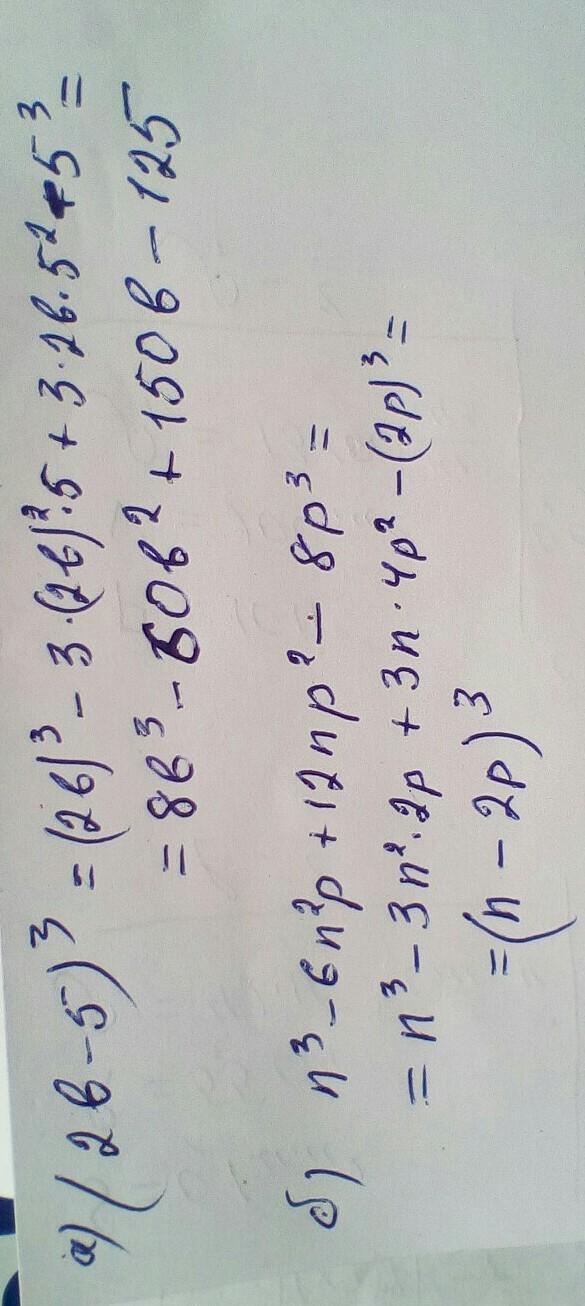 а) (2b-5)³ = (2b)³ - 3·(2b)²·5 + 3·2b·5² - 5³ =
= 8b³ - 60b² + 150b - 125
б) n³ - 6n²p + 12np² - 8p³ =
= n³ - 3n²·2p + 3n·4p² - (2p)³ =
= (n - 2p)³